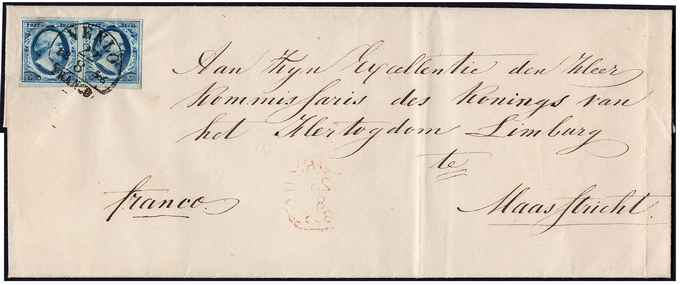 POST ZEGEL POST ZEGEL
VENLO
FRANCO.
Aan Zijn Excellentie den Heer
Kommissaris des Konings van
het Hertogdom Limburg
te
Maasstricht.
franco